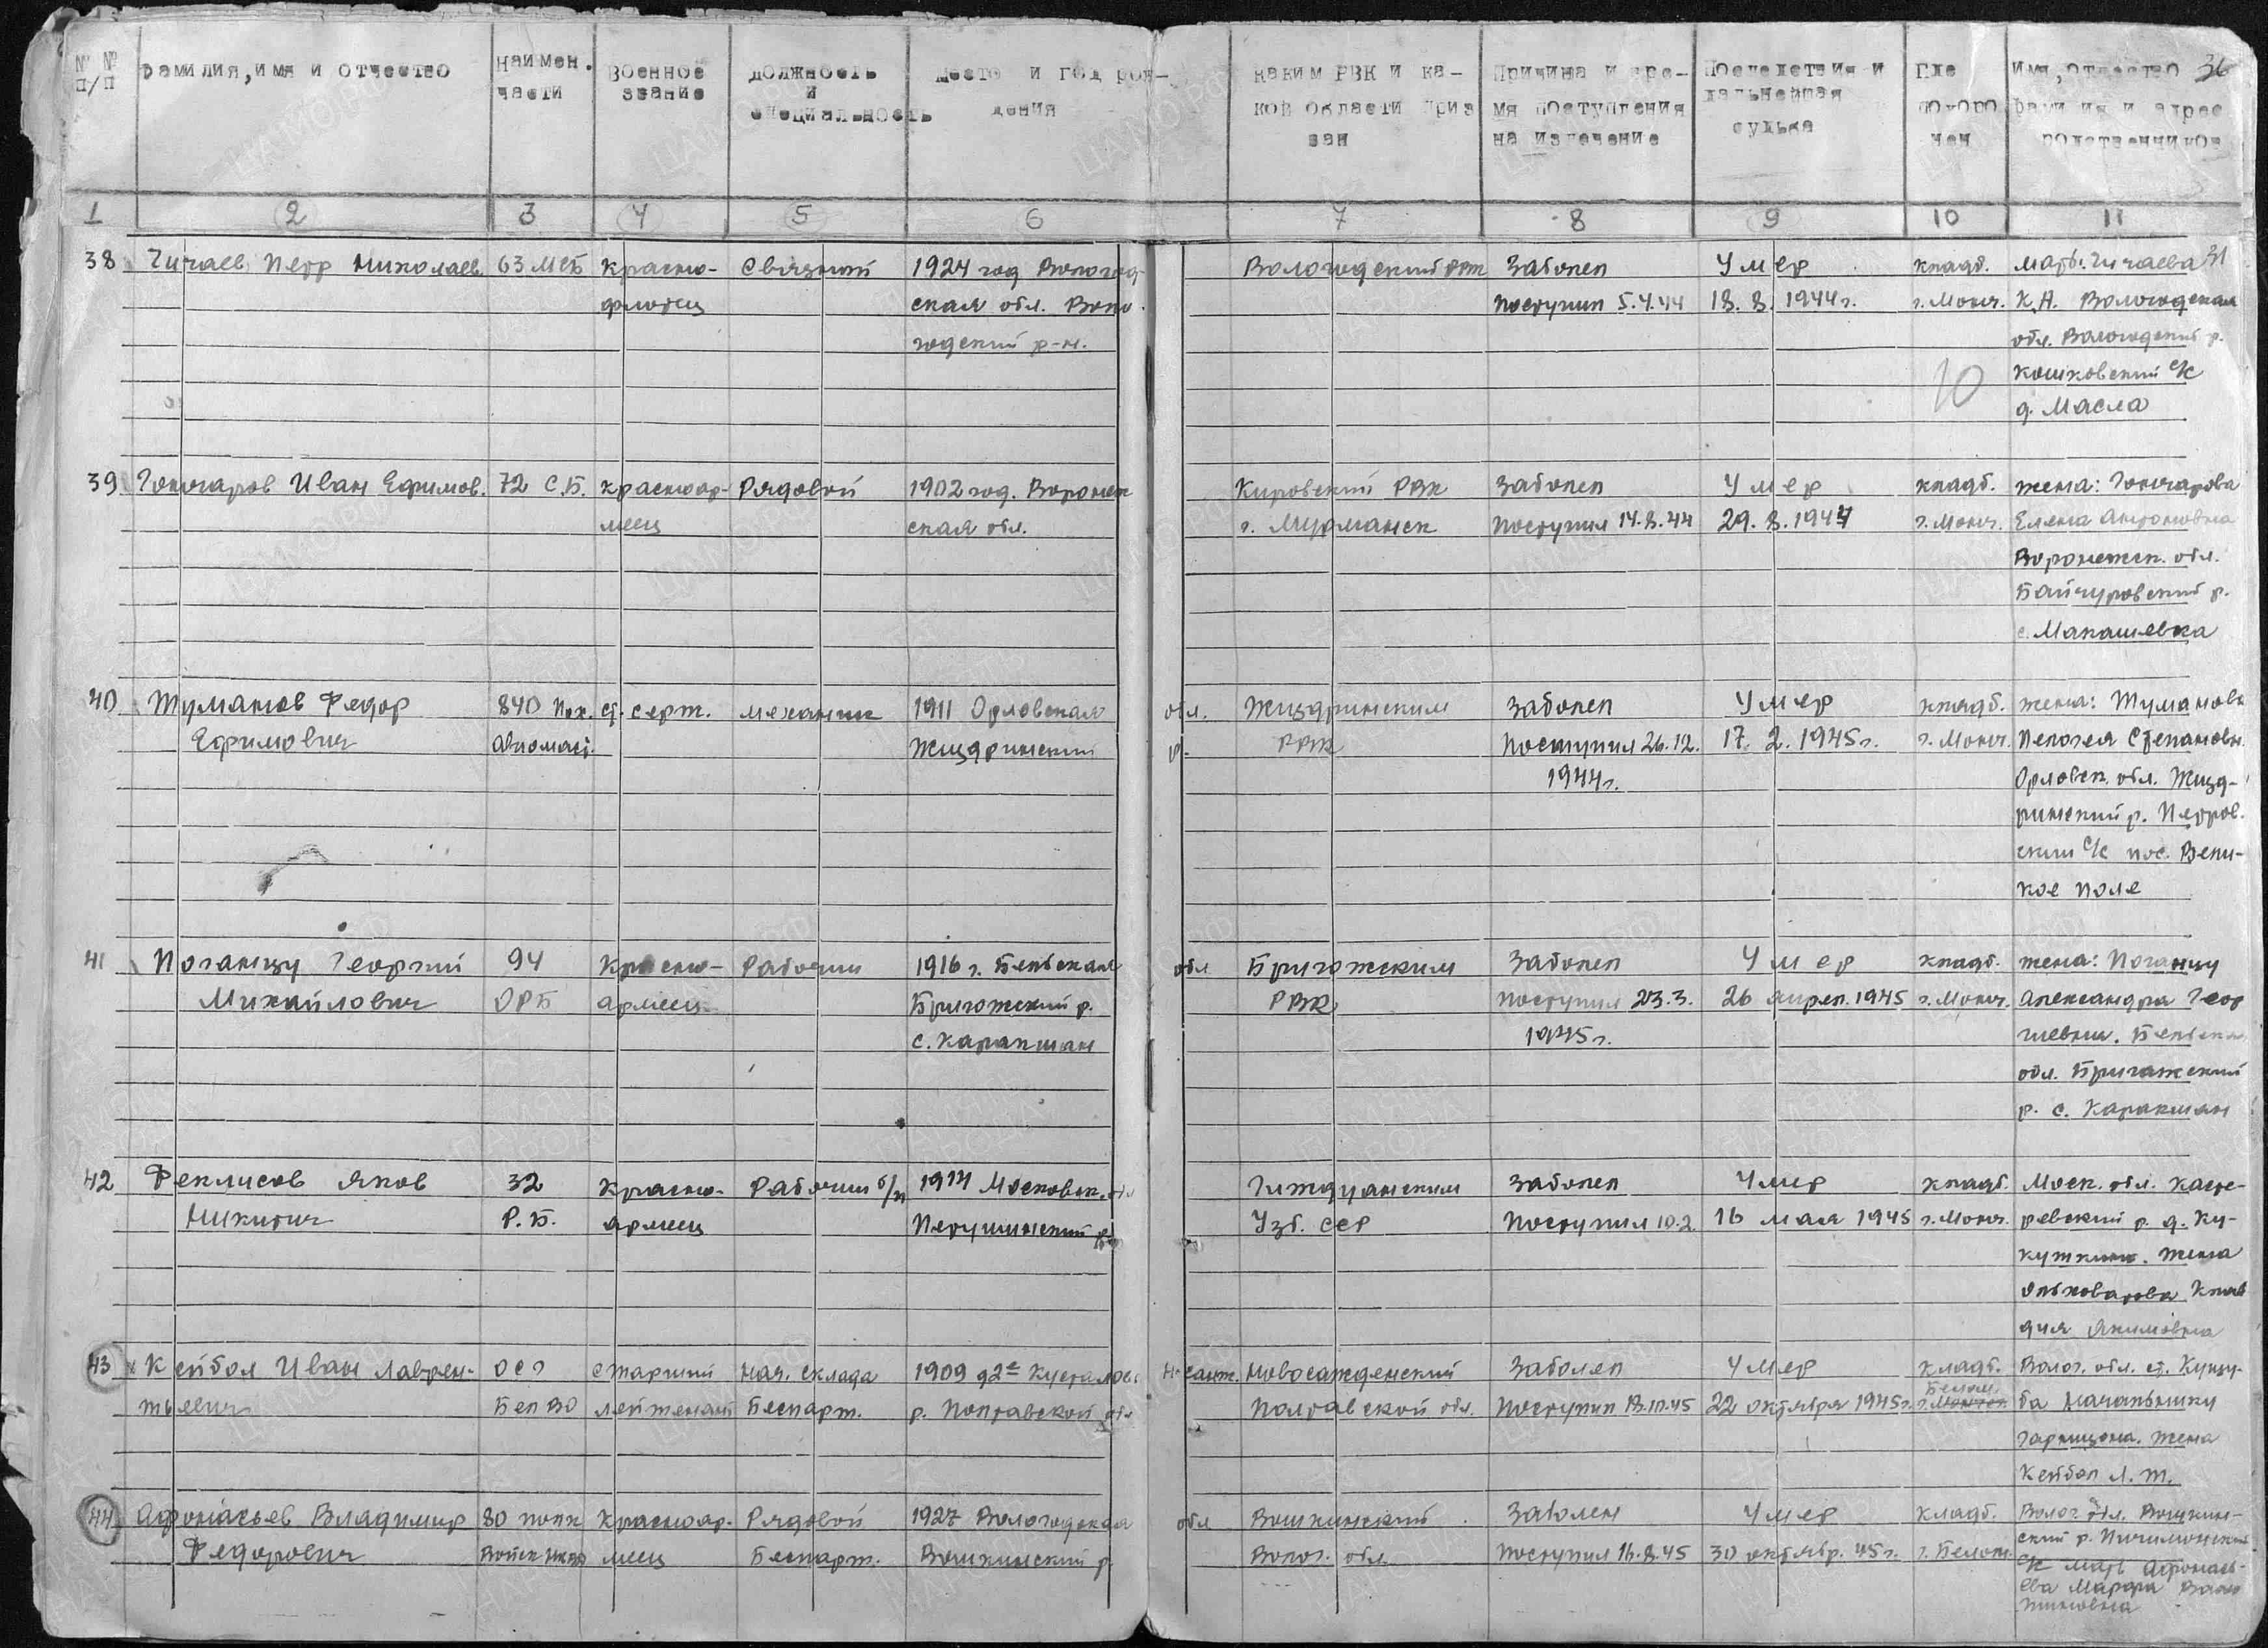 № № п/п
Фамилия, имя и отчество
Наимен. части
Военное звание
Должность и специальность
Место и год рождения
Каким РВК и какой области призван
Причина и время поступления на излечение
Последствия и дальнейшая судьба
Где похоронен
Имя, отчество фамилия и адрес родственников
36
1 2 3 4 5 6 7 8 9 10 11
38 Чичаев Петр Николаев. 63 МСБ Красно- Связной 1924 год Вологод- Вологодский РВК Заболел Умер кладб. мать: Чичаева 31
флотец ская обл. Воло- поступил 5.4.44 18.8.1944г. г. Монч. К.А. Вологодская
годский р-н. обл. Вологодский р.
10 Кошковский с/с
д. Масла
39 Гончаров Иван Ефимов. 72 С.Б. Красноар- Рядовой 1902 год. Воронеж Кировский РВК Заболел Умер кладб. жена: Гончарова
меец ская обл. г. Мурманск поступил 14.8.44 29.8.1944 г. Монч. Елена Антоновна
Воронежск. обл.
Байчуровский р.
с. Макашевка
40 Туманов Федор 840 Пох. ст. серж. механик 1911 Орловская обл. Жиздринским Заболел Умер кладб. жена: Туманова
Ефимович Авиомаст. Жиздринский р. РВК Поступил 26.12. 17.2.1945г. г. Монч. Пелагея Степановн.
1944г. Орловск. обл. Жизд-
ринский р. Петров.
ским с/с пос. Вели-
кое поле
41 Поганцу Георгий 94 Красно- Рабочий 1916 г. Бельская обл Бричожским Заболел Умер кладб. жена: Поганцу
Михайлович ОРБ армеец Бричожский р. РВК поступил 23.3. 26 апрел. 1945 г. Монч. Александра Геор
с. Каракшан 1945г. гиевна. Бельска
обл. Бричажский
р. с. Каракшан
42 Феклисов Яков 32 Красно- Рабочий б/п 1914 Московск. обл Гиждуанским Заболел Умер кладб. Моск. обл. Касте-
Никитич Р.Б. армеец Петушинский р. Узб. ССР Поступил 10.2. 16 мая 1945 г. Монч. ревский р. д. Ку-
кушкино. жена
Клав
дия Якимовна
43 Кейбол Иван Лаврен- ОСГ старший Нач. склада 1909 Н-санж. Новосанженский Заболел Умер кладб. Волог. обл. ст. Кущу-
тьевич БелВО лейтенант Беспарт. р. Полтавской обл Полтавской обл. Поступил 18.10.45 22 октября 1945г. г. Белом. ба Начальнику
гарнизона. жена
Кейбол Л. Т.
44 Афонасьев Владимир 80 полк Красноар- Рядовой 1927 Вологодская обл Вашкинский Заболел Умер кладб. Волог. обл. Вашкин-
Федорович Войск НКВД меец Беспарт. Вашкинский р. Волог. обл. Поступил 16.8.45 30 октябр. 45г. г. Белом. ский р.
с/с мать Афонась-
ева Марфа